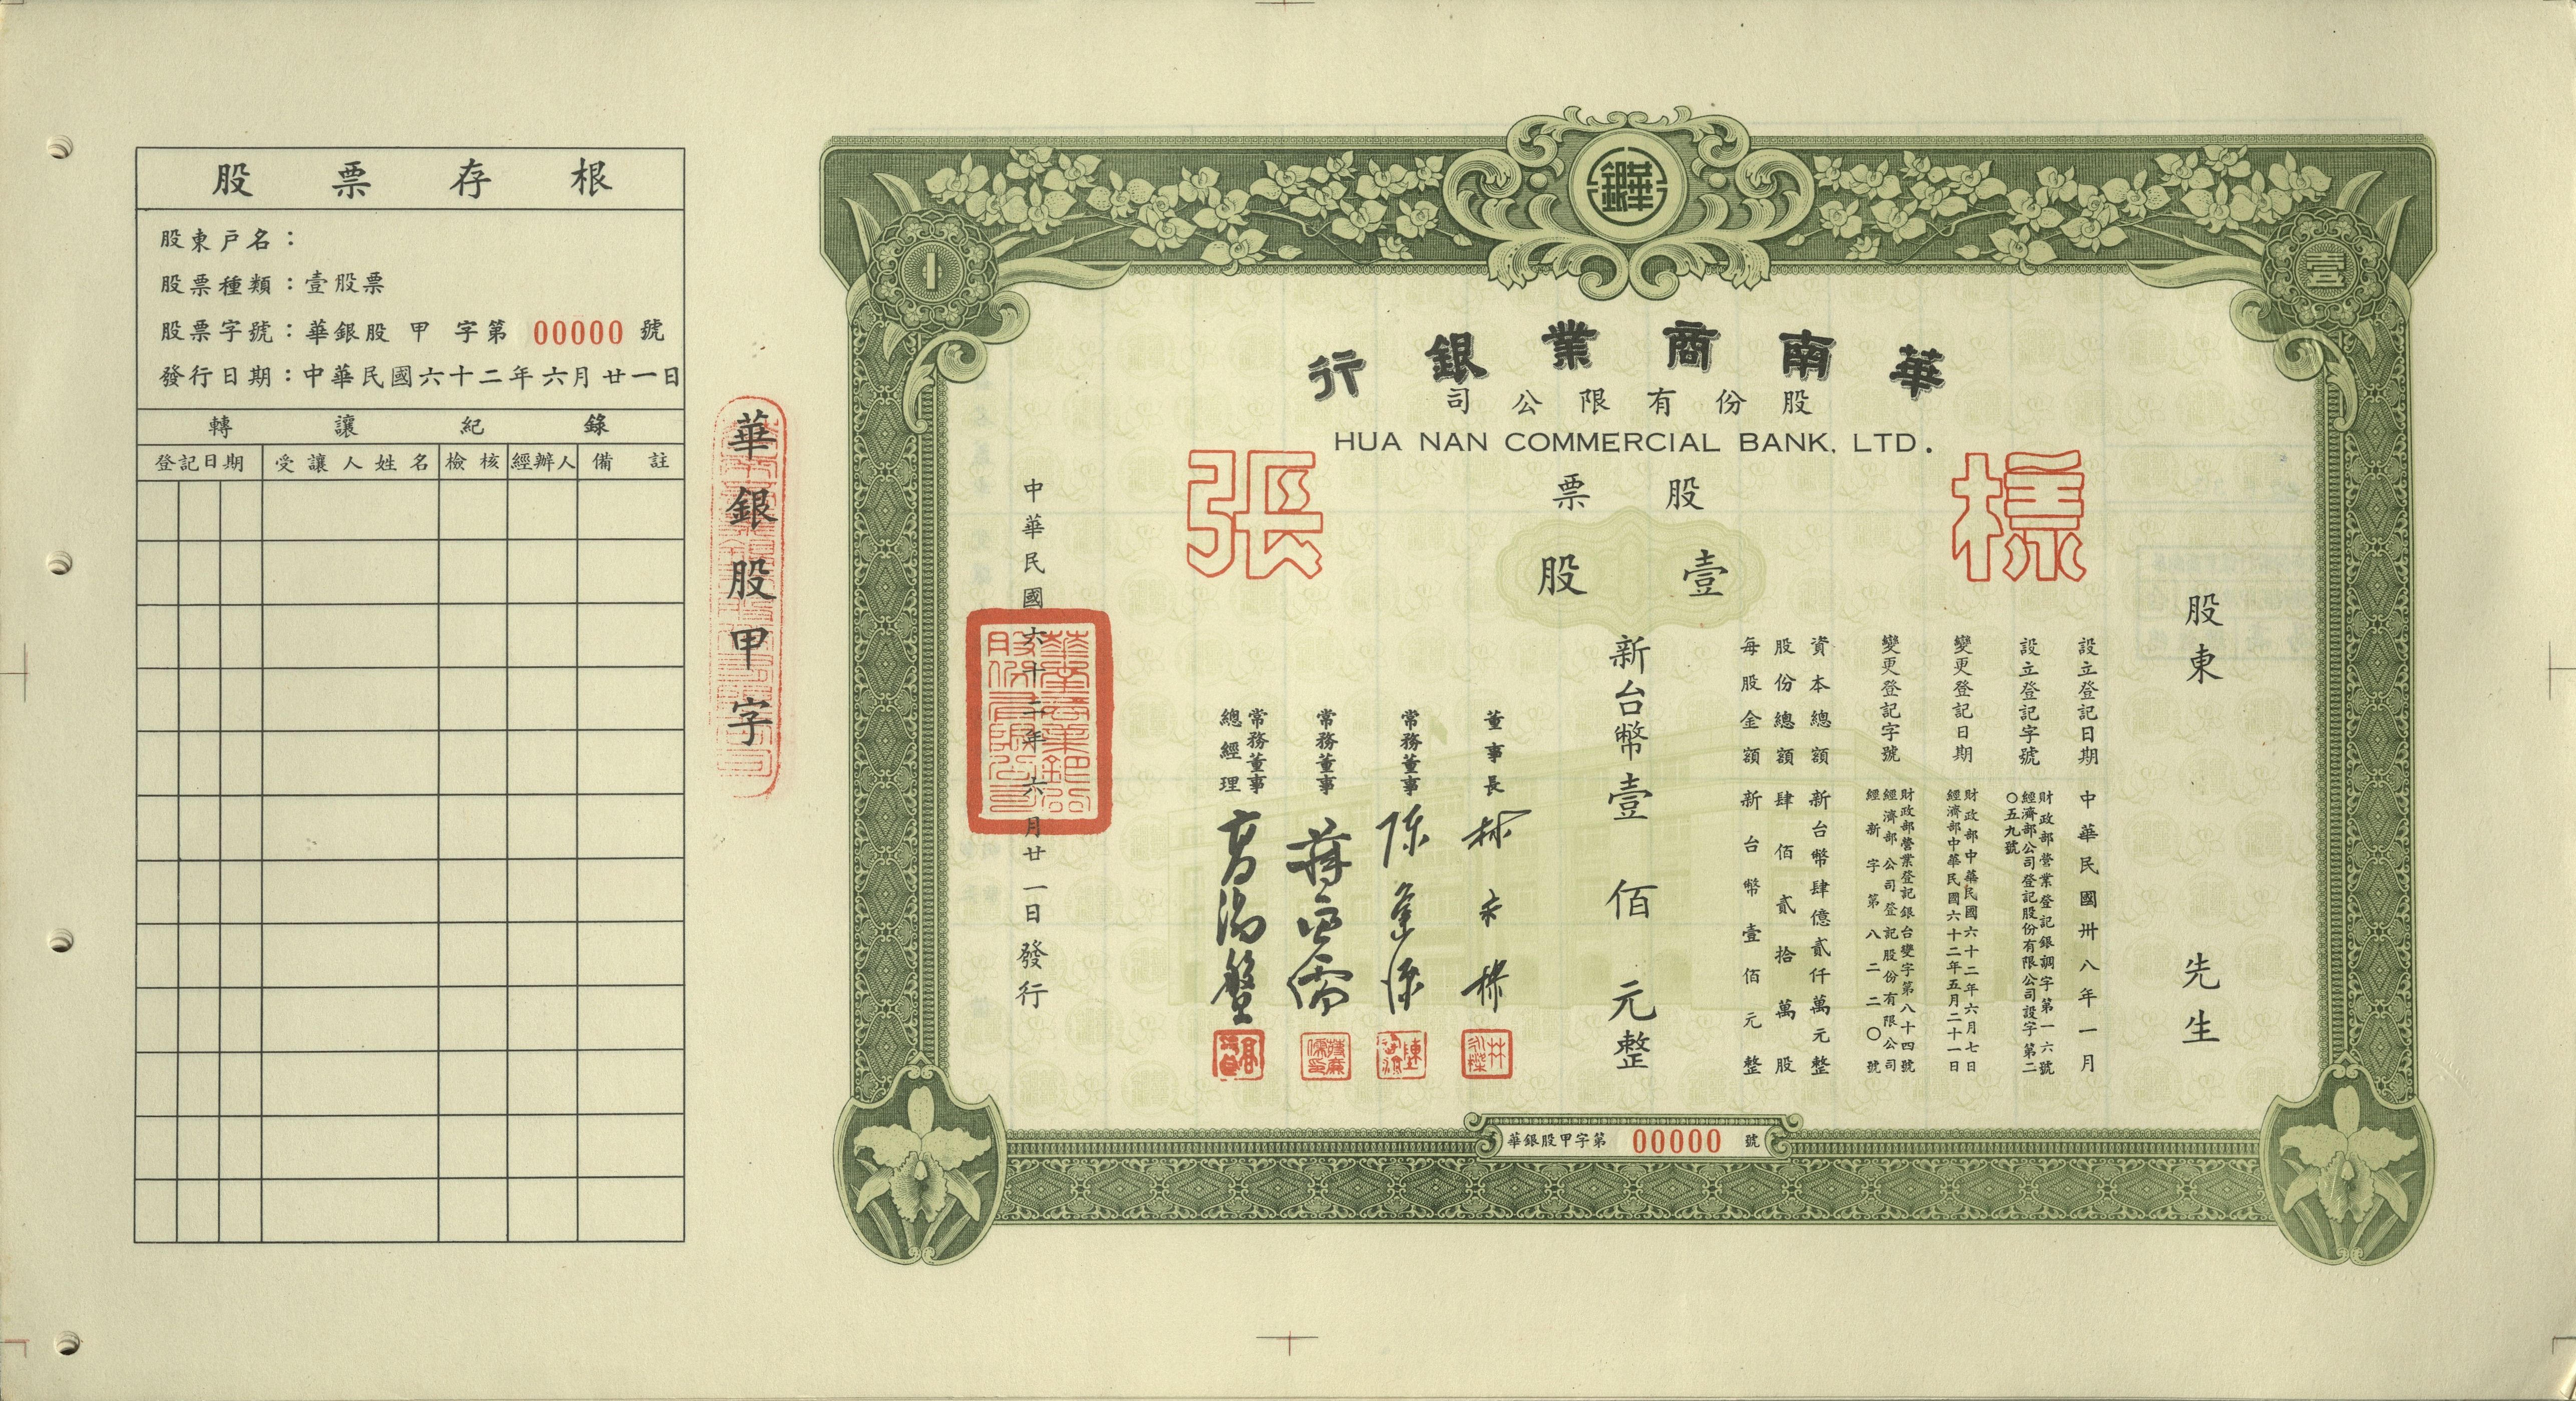 股票存根
股東戶名：
股票種類：壹股票
股票字號：華銀股 甲 字第 00000 號
發行日期：中華民國六十二年六月廿一日
轉讓紀錄
登記日期 受讓人姓名 檢核 經辦人 備註
華銀股甲字
1
華銀
壹
華南商業銀行
股份有限公司
HUA NAN COMMERCIAL BANK, LTD.
樣張
股票
壹股
股東 先生
設立登記日期 中華民國卅八年一月
設立登記字號 財政部營業登記銀調字第一六號
經濟部公司登記股份有限公司設字第二
〇五九號
變更登記日期 財政部中華民國六十二年六月七日
經濟部中華民國六十二年五月二十一日
變更登記字號 財政部營業登記銀台變字第八十四號
經濟部公司登記股份有限公司
經新字第八二二〇號
資本總額 新台幣肆億貳仟萬元整
股份總額 肆佰貳拾萬股
每股金額 新台幣壹佰元整
新台幣壹佰元整
董事長 林
常務董事 陳
常務董事 蔣
常務董事
總經理 高
中華民國六十二年六月廿一日發行
華銀股甲字第 00000 號